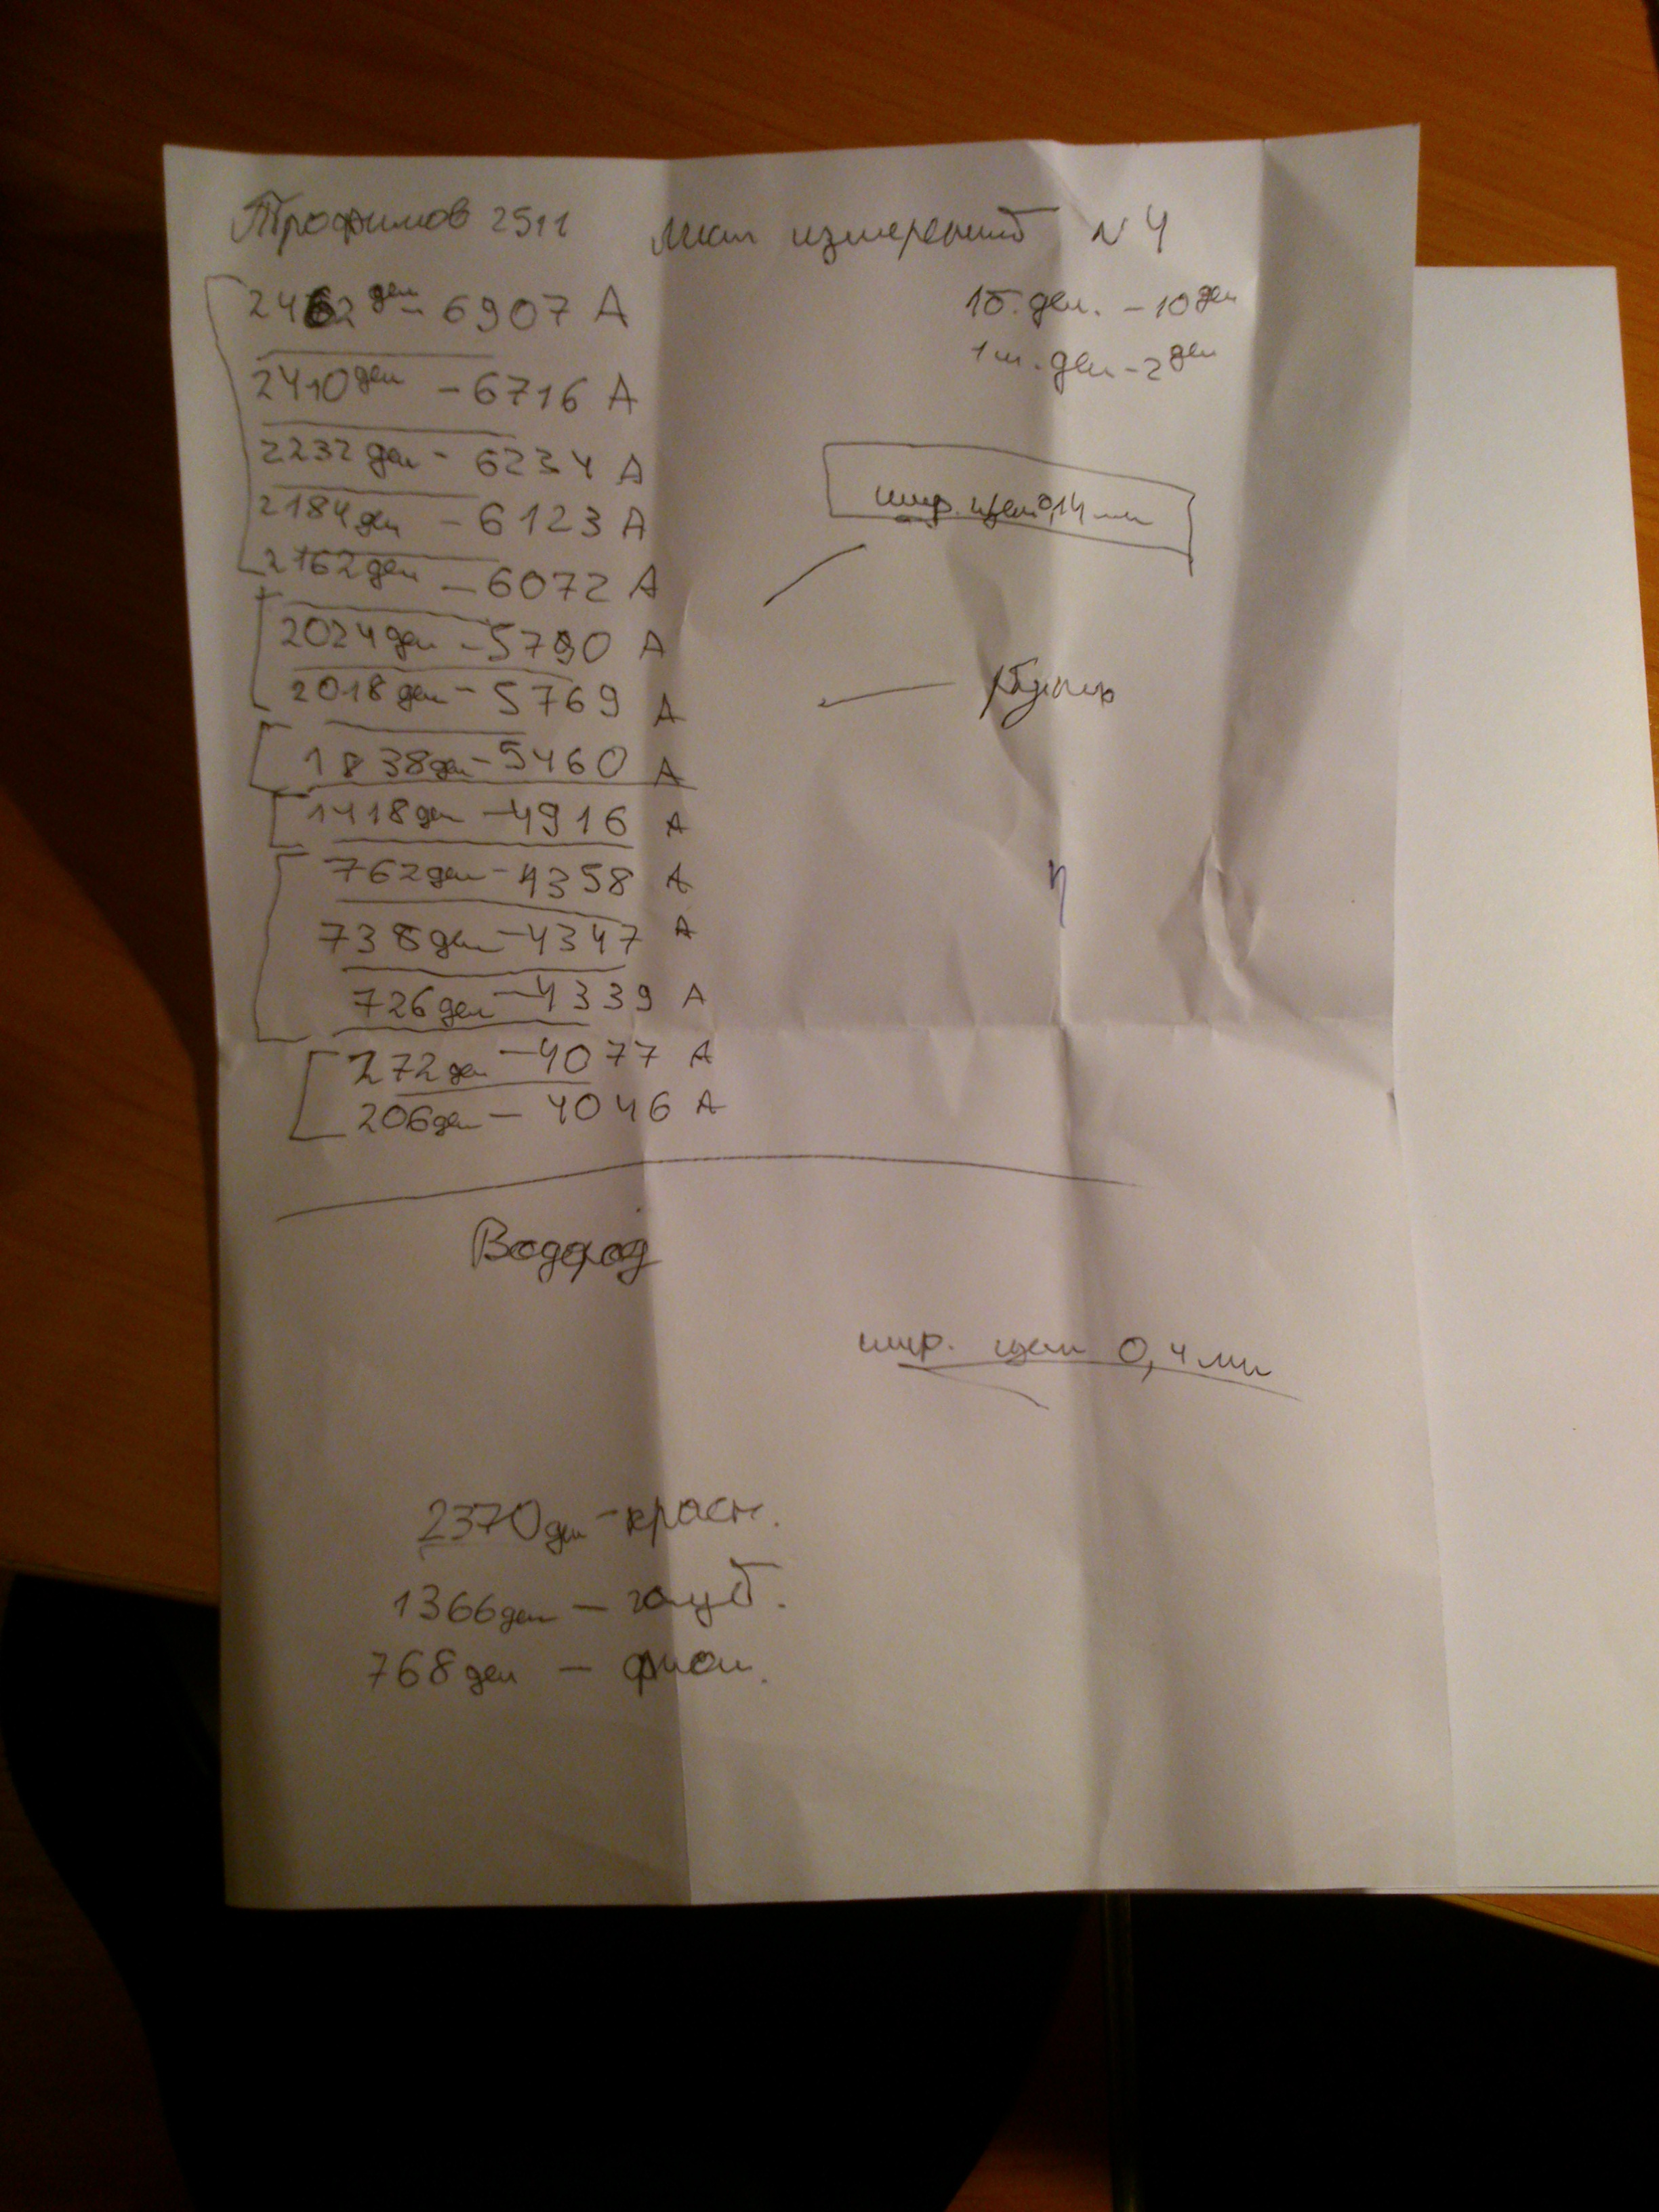 Трофимов 2511 Лист измерений N 4
2462 дел - 6907 А
2410 дел - 6716 А
2232 дел - 6234 А
2184 дел - 6123 А
2162 дел - 6072 А
2024 дел - 5790 А
2018 дел - 5769 А
1838 дел - 5460 А
1418 дел - 4916 А
762 дел - 4358 А
738 дел - 4347 А
726 дел - 4339 А
272 дел - 4077 А
206 дел - 4046 А
1б. дел. - 10 дел
1м. дел - 2 дел
шир. щели 0,14 мм
Ртуть
Водород
шир. щели 0,4 мм
2370 дел - красн.
1366 дел - голуб.
768 дел - фиол.